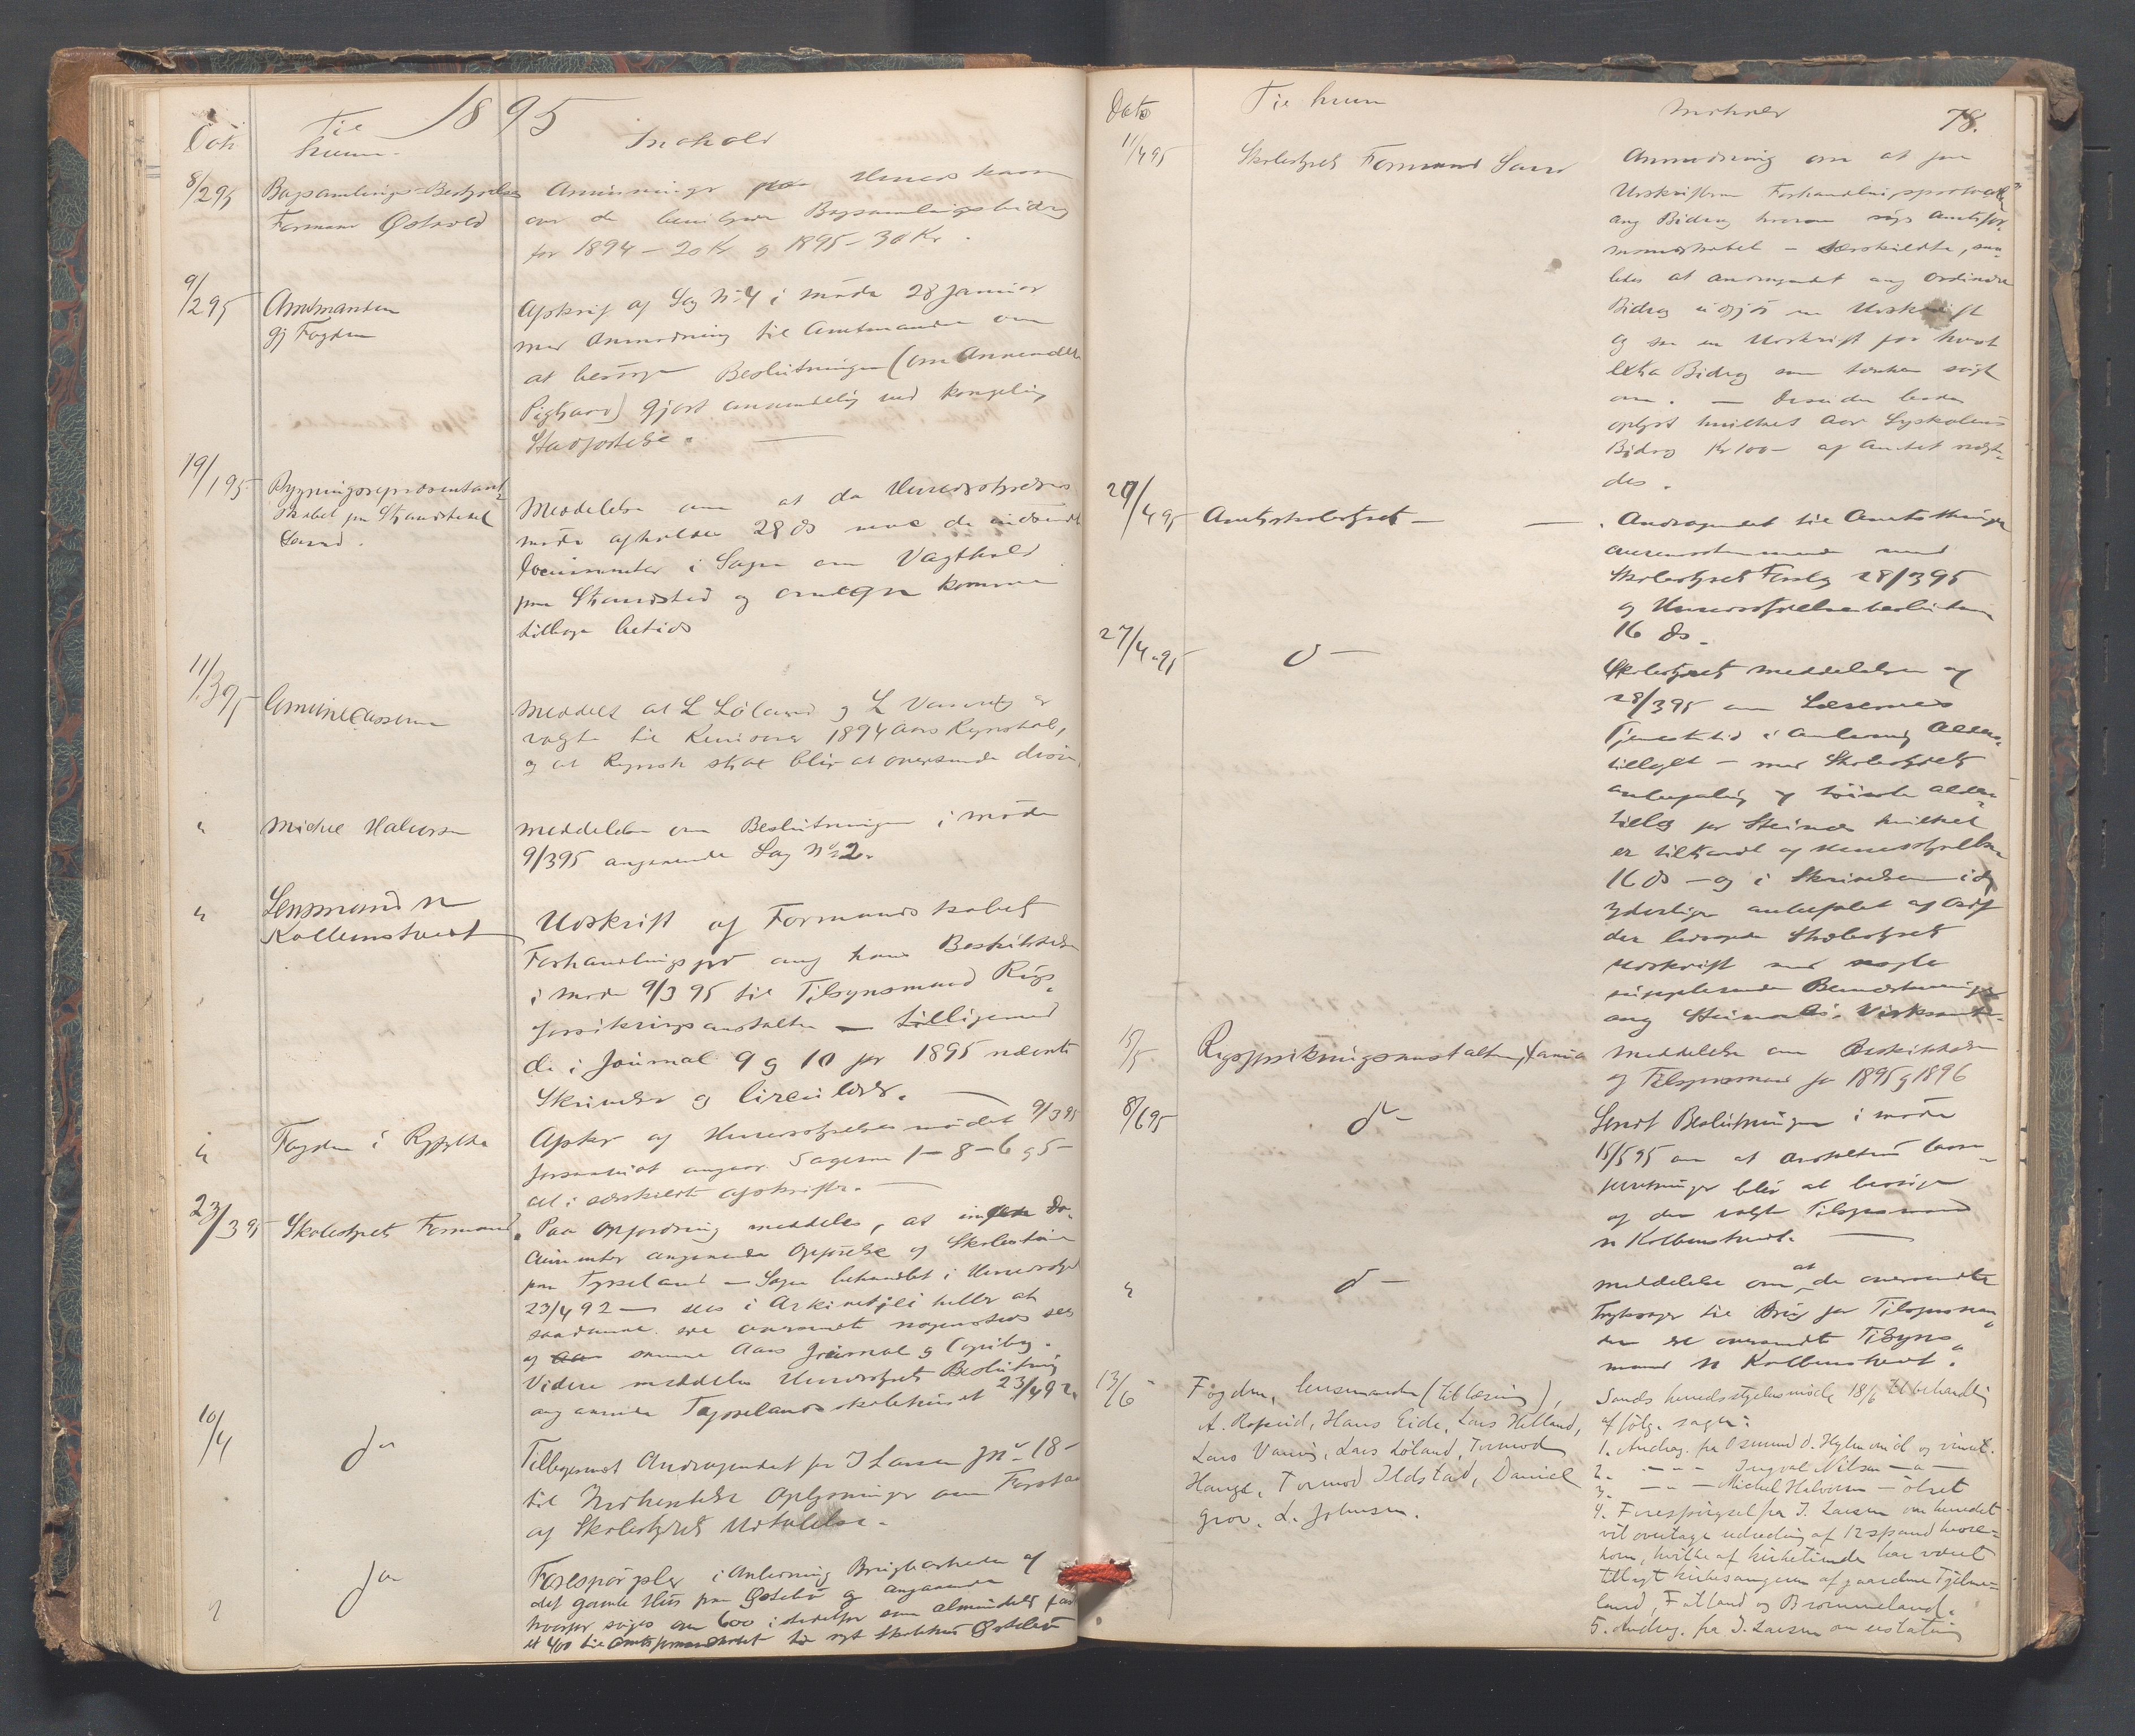 1895
Dato
Til
hvem.
Indhold
8/2 95
Bogsamlings-Bestyrelsens
Formand Østvold
Anvisninger paa Herredskassen
over de bevilgede Bogsamlingsbidrag
for 1894 – 20 Kr og 1895 – 30 Kr.
9/2 95
Amtmanden
gj Fogden
Afskrift af Sag No 4 i møde 28 Januar
med Anmodning til Amtmanden om
at besørge Beslutningen (om Anvendelse
Pigtraad) gjort anvendelig ved kongelig
Stadfæstelse.
19/1 95
Bygningsrepræsentant-
skabet paa Strandstedet
Sand.
Meddelelse om at da Herredsstyrelsens
møde afholdes 28 ds maa de indsendte
Documenter i Sagen om Vagthold
paa Strandsted og omegn komme
tilbage betids
11/3 95
Communecassereren
Meddelt at L Løland og L Vanvig er
valgte til Revisorer 1894 Aars Regnskab,
og at Regnsk. skal blive at oversende disse.
"
Michel Halvorsen
Meddelelse om Beslutningen i møde
9/3 95 angaaende Sag No 2.
"
Lensmand N
Kolbenstvedt
Udskrift af Formandskabets
Forhandlingspr ang hans Beskikkelse
i møde 9/3 95 til Tilsynsmand Rigs-
forsikringsanstalten — tilligemed
de i Journal 9 og 10 for 1895 nævnte
Skrivelser og Circulærer.
"
Fogden i Ryfylke
Afskr af Herredsstyrelsesmødet 9/3 95
forsaavidt angaar Sagerne 1 – 8 – 6 og 5 –
alt i særskildt afskrifter.
23/3 95
Skolestyrets Formand.
Paa Opfordring meddeles, at ingen Do-
cumenter angaaende Opførelse af Skolestue
paa Tysseland – Sagen behandlet i Herredsstyret
23/4 92 — sees i Arkivet, ei heller at
saadanne ere oversendt nogensteds sees
af samme Aars Journal og Copibog.
Videre meddeles Herredsstyrets Beslutning
ang Tysselands skolehuset 23/4 92.
10/4
do
Tilbagesendt Andragendet fra J Larsen Jno 18 –
til Indhentelse Oplysninger om
af Skolestyrets Udtalelse.
"
do
Forespørgsler i Anledning Brugbarheden af
det gamle Hus paa Østebø og angaaende
hvorfor søges om 600 istedetfor som almindelig
400 til Amtsformandskabet til nyt Skolehus Østebø
Dato
Til hvem
Indhold
78.
11/4 95
Skolestyrets Formand Sand
Anmodning om at faa
Udskrifterne Forhandlingsprotocollen
ang Bidrag hvorom søges Amtsfor-
mandskabet – særskildte, saa-
ledes at andragendet ang Ordinære
Bidrag udgjør en Udskrift
og saa en Udskrift for hvert
extra Bidrag som tænkes søgt
om. — Desuden bedes
oplyst hvilket Aar Syskolens
Bidrag Kr 100 – af Amtet nægte-
des.
20/4 95
Amtsskolestyret —
Andragendet til Amtsthinget
overensstemmende med
Skolestyrets Forslag 28/3 95
og Herredsstyrelsesbeslutning
16 ds.
27/4 95
do —
Skolestyrets meddelelse af
28/3 95 om Lærernes
Tjenestetid i Anledning Alders-
tillægget – med Skolestyrets
anbefaling af høieste alders-
tillæg for Steinnes hvilket
er tiltraadt af Herredsstyrelsen
16 ds – og i Skrivelsen i dag
yderligere anbefalet af
den ledsagende Skolestyrets
Udskrift med nogle
supplerende Bemærkninger
ang Steinnes Virksomhed.
15/5
Rigsforsikringsanstalten, Xania
Meddelelse om Beskikkelse
af Tilsynsmand for 1895 og 1896
8/6 95
do –
Sendt Beslutningen i møde
15/5 95 om at Anstaltens Kom-
pensationer blir at besørge
af den valgte Tilsynsmand
N Kolbenstvedt.
"
do –
Meddelelse om at de oversendte
Tryksager til Brug for Tilsynsman-
den ere oversendt Tilsyns-
mand N Kolbenstvedt.
13/6
Fogden, lensmanden (til læsning),
A. Ropeid, Hans Eide, Lars Helland,
Lars Vanvig, Lars Løland, Tormod
Hauge, Tormod Ilstad, Daniel
Grov, L. Johnsen.
Sands herredsstyrelsesmøde 18/6 til behandling
af følg. sager:
1. Andrag. fra Osmund O. Hylen vinudsalg
2. – " – Ingval Nilsen – " –
3. – " – Michel Halvorsen – ølret
4. Forespørgsel fra J. Larsen om herredet
vil overtage udredning af 12 spand havre-
korn, hvilke af kirketiende har været
tillagt kirkesangeren af gaardene Tjelme-
land, Fatland og Brommeland.
5. Andrag. fra J. Larsen om erstatning